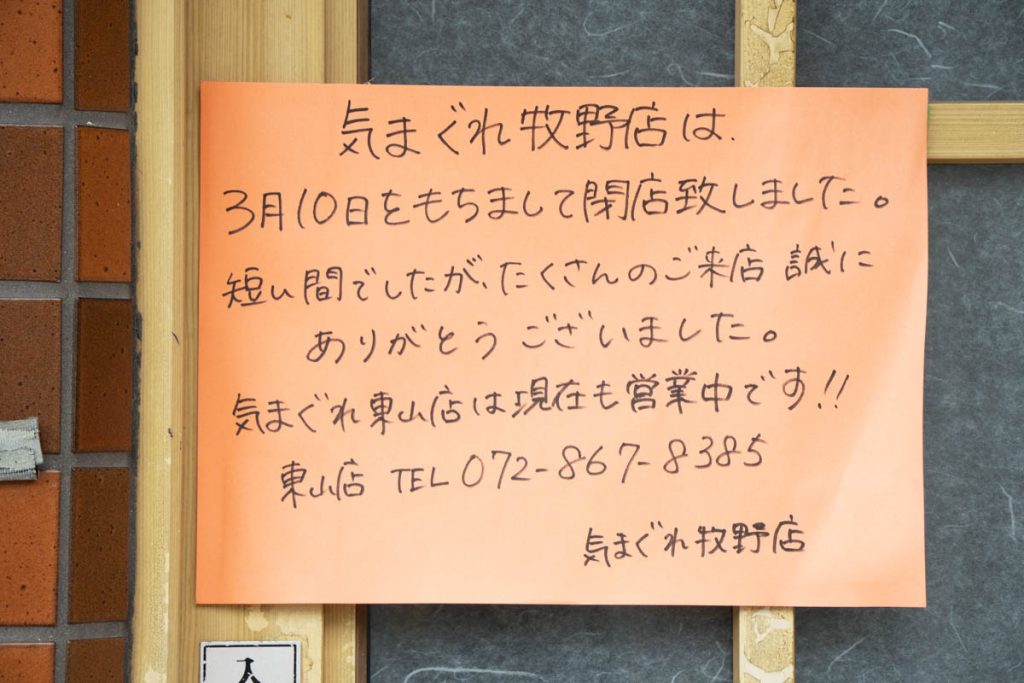 気まぐれ牧野店は、
3月10日をもちまして閉店致しました。
短い間でしたが、たくさんのご来店 誠に
ありがとう ございました。
気まぐれ東山店は現在も営業中です!!
東山店 TEL 072-867-8385
気まぐれ牧野店
入